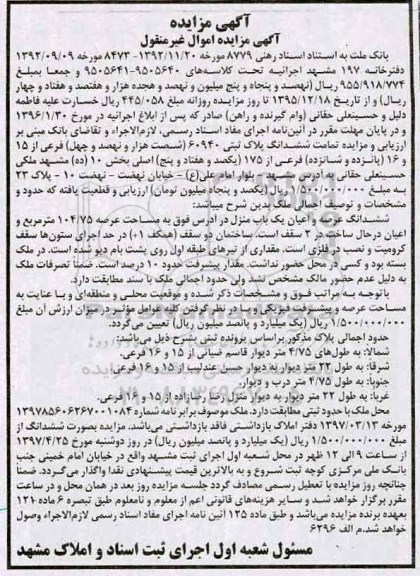 آگهی مزایده
آگهی مزایده اموال غیرمنقول
بانک ملت به استناد اسناد رهنی ۸۷۷۹ مورخه ۱۳۹۲/۱۱/۲۰- ۸۴۷۳ مورخه ۱۳۹۲/۰۹/۰۹
دفترخانه ۱۹۷ مشهد اجرائیه تحت کلاسه‌های ۹۵۰۵۶۴۰-۹۵۰۵۶۴۱ و جمعا بمبلغ
۹۵۵/۹۱۸/۷۷۴ ریال (نهصد و پنجاه و پنج میلیون و نهصد و هجده هزار و هفتصد و هفتاد و چهار
ریال) و از تاریخ ۱۳۹۵/۱۲/۱۸ تا روز مزایده روزانه مبلغ ۴۴۵/۰۵۸ ریال خسارت علیه فاطمه
دلیل و حسینعلی حقانی (وام گیرنده و راهن) صادر که پس از ابلاغ اجرائیه در مورخ ۱۳۹۶/۱/۳۰
و در پایان مهلت مقرر در آئین‌نامه اجرای مفاد اسناد رسمی، لازم‌الاجراء و تقاضای بانک مبنی بر
ارزیابی و مزایده تمامت ششدانگ پلاک ثبتی ۶۰۹۴۰ (شصت هزار و نهصد و چهل) فرعی از ۱۵
و ۱۶ (پانزده و شانزده) فرعی از ۱۷۵ (یکصد و هفتاد و پنج) اصلی بخش ۱۰ (ده) مشهد ملکی
حسینعلی حقانی به آدرس مشهد - بلوار امام علی(ع) - خیابان نهضت - نهضت ۱۰ - پلاک ۲۳
به مبلغ ۱/۵۰۰/۰۰۰/۰۰۰ ریال (یکصد و پنجاه میلیون تومان) ارزیابی و قطعیت یافته که حدود و
مشخصات و توصیف اجمالی ملک بدین شرح میباشد:
ششدانگ عرصه و اعیان یک باب منزل در آدرس فوق به مساحت عرصه ۱۰۴/۷۵ مترمربع و
اعیان درحال ساخت در ۲ سقف است. ساختمان دو سقف (همکف +۱) در حد اجرای ستون‌ها سقف
کرومیت و نصب در فلزی است. مقداری از تیرهای طبقه اول روی پشت بام دپو شده است. در ملک
بسته بود و کسی در محل حضور نداشت. مقدار پیشرفت حدود ۱۰ درصد است. ضمنا تصرفات ملک
به دلیل عدم حضور مالک مشخص نشد ولی حدود اجمالی ملک با سند مطابقت دارد.
باتوجه به مراتب فوق و مشخصات ذکر شده و موقعیت محلی و منطقه‌ای و با عنایت به
مساحت عرصه و پیشرفت فیزیکی و با در نظر گرفتن کلیه عوامل مؤثر در میزان ارزش آن مبلغ
۱/۵۰۰/۰۰۰/۰۰۰ ریال (یک میلیارد و پانصد میلیون ریال) تعیین می‌گردد.
حدود اجمالی پلاک مذکور براساس پرونده ثبتی بشرح ذیل می‌باشد:
شمالا: به طول‌های ۴/۷۵ متر دیوار قاسم ضیائی از ۱۵ و ۱۶ فرعی.
شرقا: به طول ۲۲ متر دیوار به دیوار حسن عندلیب از ۱۵ و ۱۶ فرعی.
جنوبا: به طول ۴/۷۵ متر درب و دیوار.
غربا: به طول ۲۲ متر دیوار به دیوار منزل رضا رضازاده از ۱۵ و ۱۶ فرعی.
محل ملک با حدود ثبتی مطابقت دارد. ملک موصوف برابر نامه شماره ۱۳۹۷۸۵۶۰۶۲۶۷۰۰۱۰۸۴
مورخه ۱۳۹۷/۰۳/۱۳ دفتر املاک بازداشتی فاقد بازداشتی می‌باشد. مزایده بصورت ششدانگ از
مبلغ ۱/۵۰۰/۰۰۰/۰۰۰ ریال (یک میلیارد و پانصد میلیون ریال) در روز دوشنبه مورخ ۱۳۹۷/۴/۲۵
از ساعت ۹ الی ۱۲ ظهر در محل شعبه اول اجرای ثبت مشهد واقع در خیابان امام خمینی جنب
بانک ملی مرکزی کوچه ثبت شروع و به بالاترین قیمت پیشنهادی نقدا واگذار می‌گردد. ضمنا
چنانچه روز مزایده با تعطیل رسمی مصادف گردد جلسه مزایده روز بعد در همان محل و در ساعت
مقرر برگزار خواهد شد و سایر هزینه‌های قانونی اعم از معلوم و نامعلوم طبق تبصره ۶ ماده ۱۲۱
بعهده برنده مزایده می‌باشد و طبق ماده ۱۲۵ آئین نامه اجرای مفاد اسناد رسمی لازم‌الاجراء وصول
خواهد شد.م الف ۶۲۹۶
مسئول شعبه اول اجرای ثبت اسناد و املاک مشهد